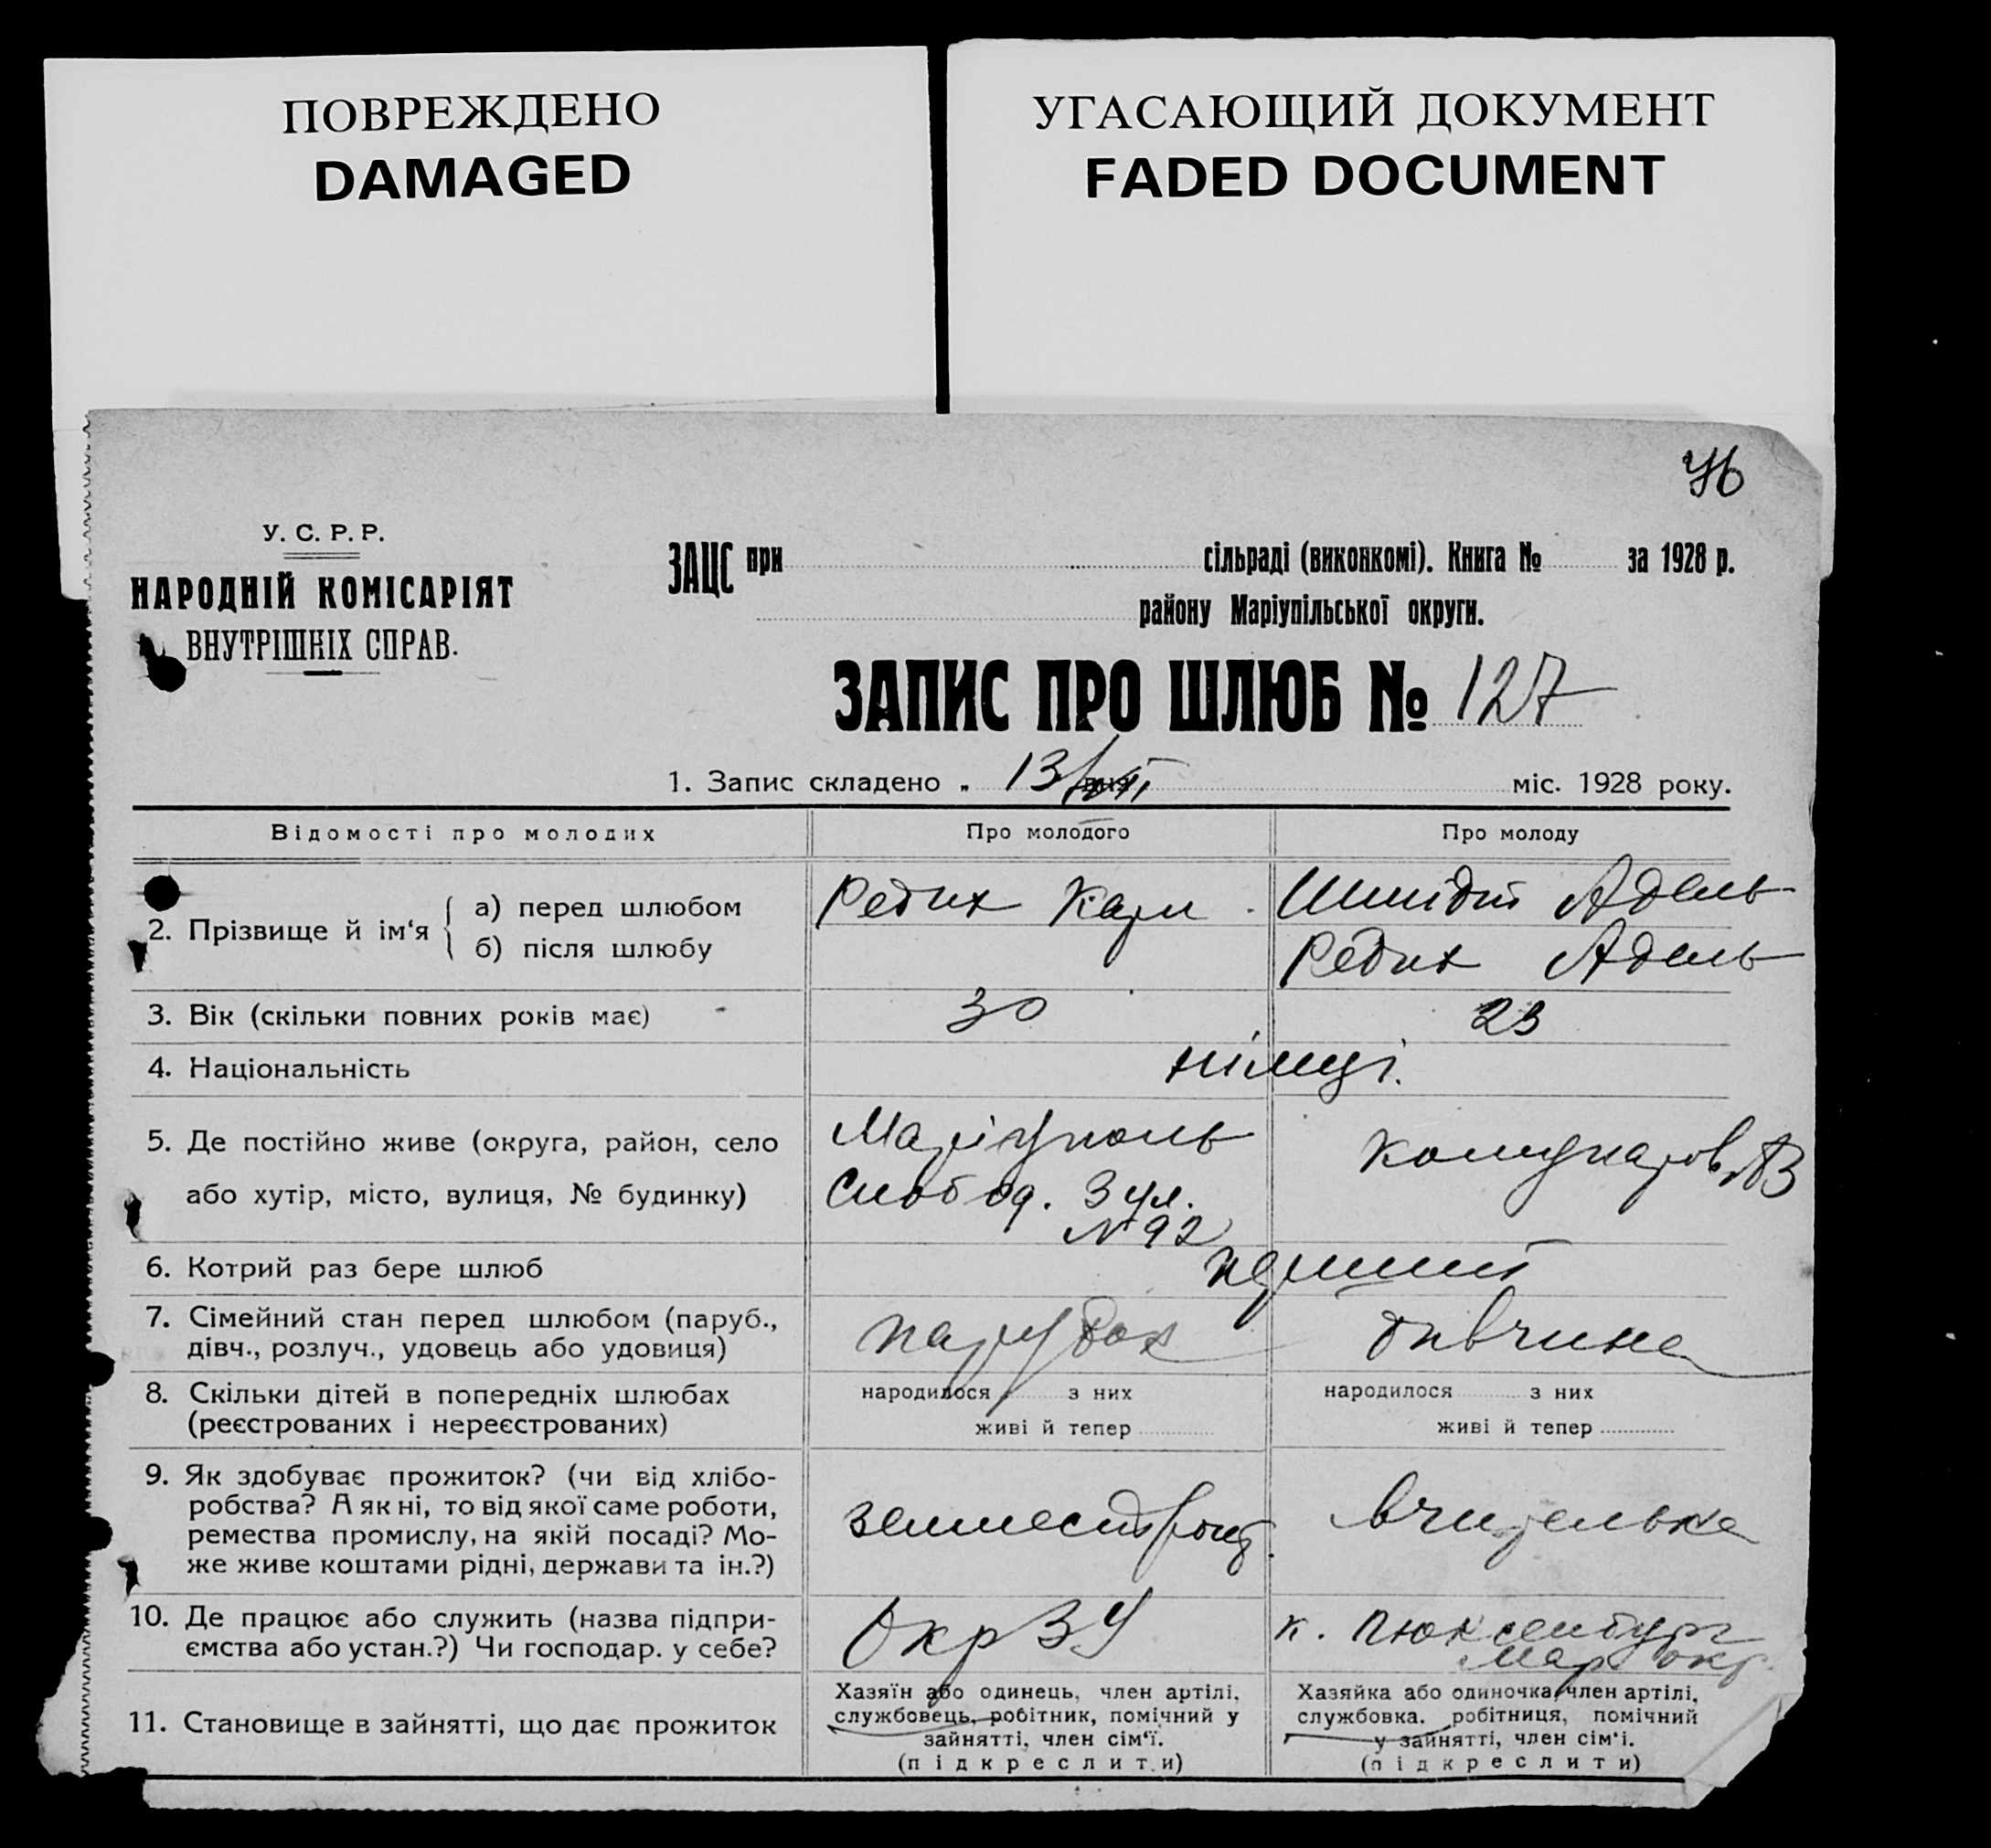 ПОВРЕЖДЕНО
DAMAGED
УГАСАЮЩИЙ ДОКУМЕНТ
FADED DOCUMENT
У. С. Р. Р.
НАРОДНІЙ КОМІСАРІЯТ
ВНУТРІШНІХ СПРАВ.
ЗАЦС при сільраді (виконкомі). Книга № за 1928 р.
району Маріупільської округи.
ЗАПИС ПРО ШЛЮБ № 127
1. Запис складено „ 13/ дня міс. 1928 року.
Відомості про молодих Про молодого Про молоду
2. Прізвище й ім‘я
а) перед шлюбом Редих Карл Шмідт Адель
б) після шлюбу Редих Адель
3. Вік (скільки повних років має) 30 23
4. Національність німці.
5. Де постійно живе (округа, район, село
або хутір, місто, вулиця, № будинку)
Маріуполь
Слобод. 3 ул.
№ 92
6. Котрий раз бере шлюб перший
7. Сімейний стан перед шлюбом (паруб.,
дівч., розлуч., удовець або удовиця)
парубок дивчина
8. Скільки дітей в попередніх шлюбах
(реєстрованих і нереєстрованих)
народилося з них
живі й тепер
народилося з них
живі й тепер
9. Як здобуває прожиток? (чи від хлібо-
робства? А як ні, то від якої саме роботи,
ремества промислу, на якій посаді? Мо-
же живе коштами рідні, держави та ін.?)
вчителька
10. Де працює або служить (назва підпри-
ємства або устан.?) Чи господар. у себе?
Окр ЗУ
к. Люксембург
Мар окр.
11. Становище в зайнятті, що дає прожиток
Хазяїн або одинець, член артілі,
службовець, робітник, помічний у
зайнятті, член сім‘ї.
(підкреслити)
Хазяйка або одиночка, член артілі,
службовка, робітниця, помічний
у зайнятті, член сім‘ї.
(підкреслити)